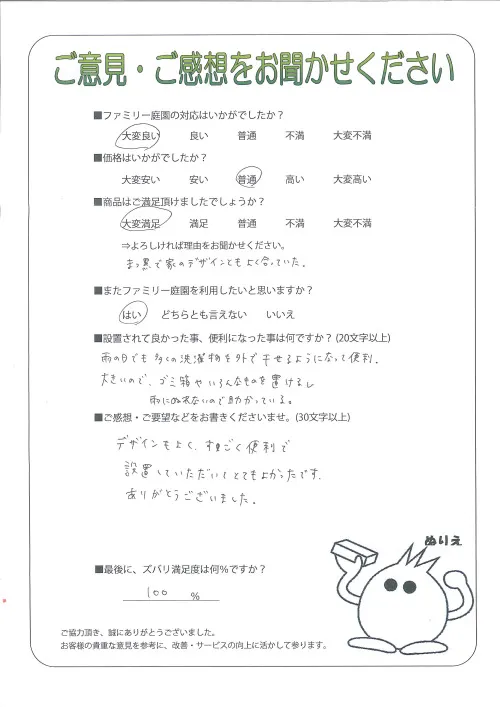 ご意見・ご感想をお聞かせください
■ファミリー庭園の対応はいかがでしたか？
大変良い 良い 普通 不満 大変不満
■価格はいかがでしたか？
大変安い 安い 普通 高い 大変高い
■商品はご満足頂けましたでしょうか？
大変満足 満足 普通 不満 大変不満
⇒よろしければ理由をお聞かせください。
まっ黒で家のデザインともよく合っていた。
■またファミリー庭園を利用したいと思いますか？
はい どちらとも言えない いいえ
■設置されて良かった事、便利になった事は何ですか？(20文字以上)
雨の日でも多くの洗濯物を外で干せるようになって便利.
大きいので、ゴミ箱やいろんなものを置けるし
雨にぬれないので助かっている。
■ご感想・ご要望などをお書きくださいませ。(30文字以上)
デザインもよく、すごく便利で
設置していただいてとてもよかったです.
ありがとうございました。
ぬりえ
■最後に、ズバリ満足度は何％ですか？
100 %
ご協力頂き、誠にありがとうございました。
お客様の貴重な意見を参考に、改善・サービスの向上に活かして参ります。